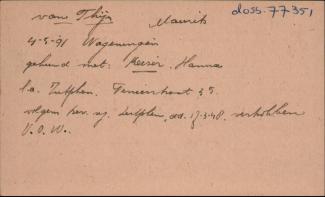 doss. 77351
van Thijn Maurits
4-5-91 Wageningen
gehuwd met: Keizer, Hanna
l.a. Zutphen.
volgens ber. v. Zutphen, dd. 17-3-48. vertrokken
V.O.W.